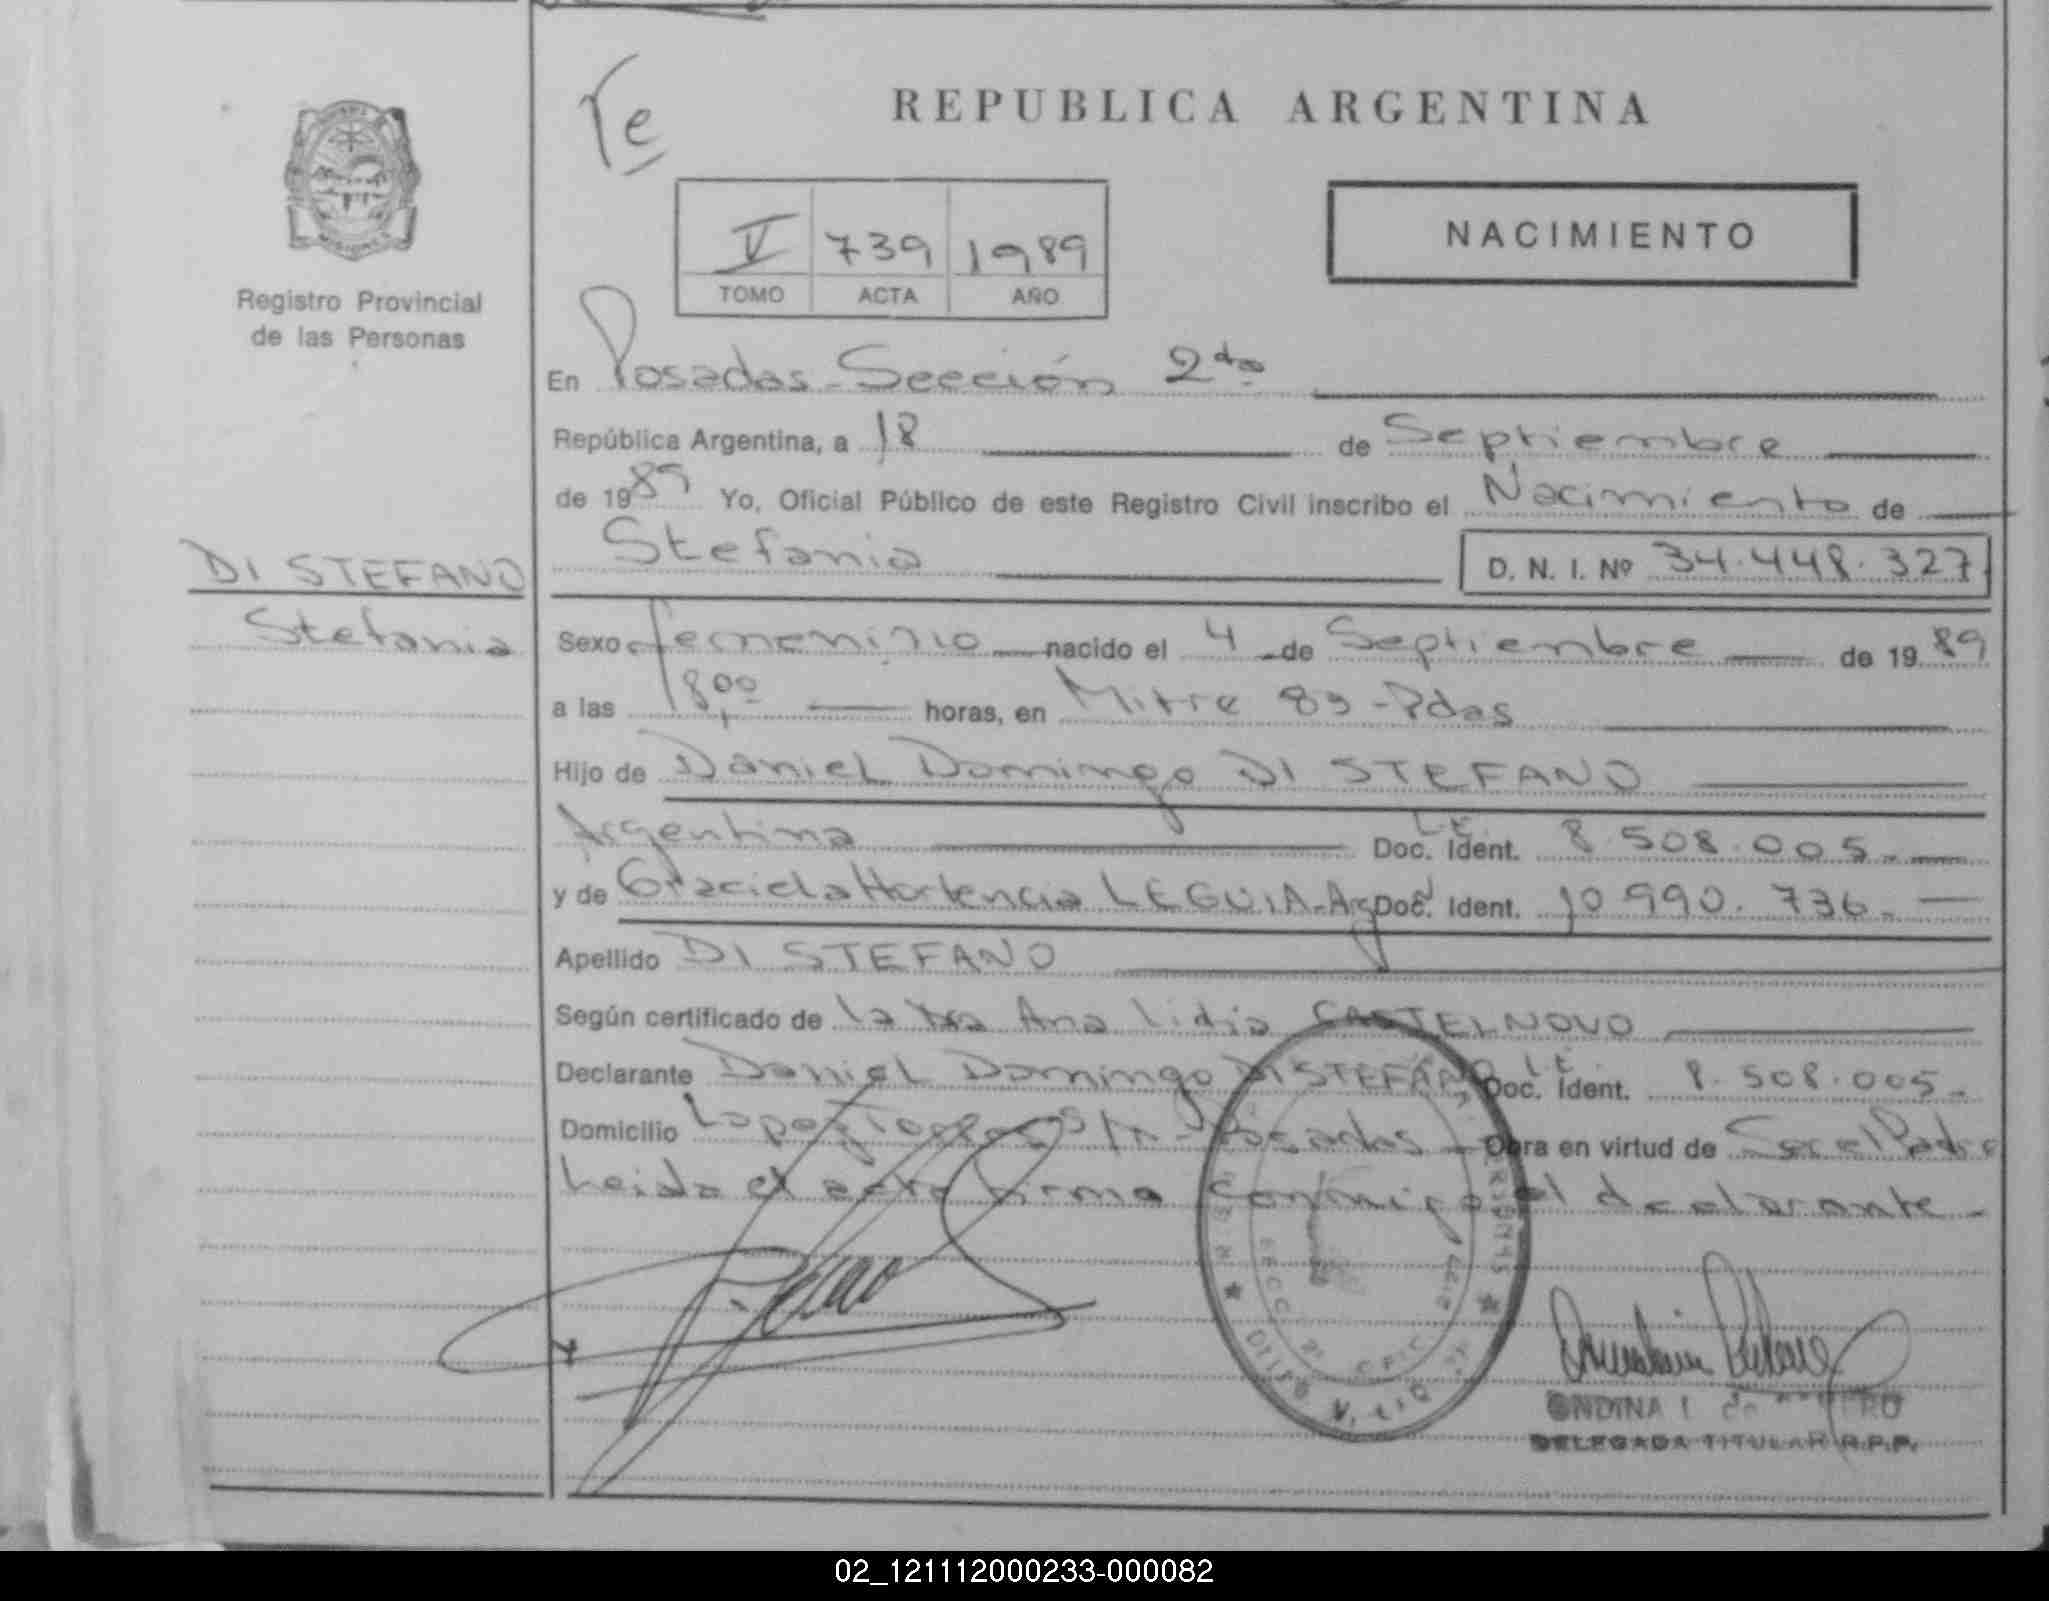 Te
REPUBLICA ARGENTINA
V 739 1989
TOMO ACTA AÑO
NACIMIENTO
MISIONES
Registro Provincial
de las Personas
En Posadas-Sección 2da
República Argentina, a 18 de Septiembre
de 1989 Yo, Oficial Público de este Registro Civil inscribo el Nacimiento de
Stefania D. N. I. Nº 34.448.327
DI STEFANO
Stefania
Sexo femenino nacido el 4 de Septiembre de 1989
a las 18,00 horas, en Mitre 83-Pdas
Hijo de Daniel Domingo DI STEFANO
Argentina Doc. Ident. L.E. 8.508.005
y de Graciela Hortencia LEGUIA-Arg Doc. Ident. 10.990.736
Apellido DI STEFANO
Según certificado de la Dra Ana Lidia CASTELNOVO
Declarante Daniel Domingo DI STEFANO Doc. Ident. L.E. 8.508.005
Domicilio Lopez Torres S/n-Posadas Obra en virtud de Ser el Padre
Leida el acta firma conmigo el declarante
ONDINA I. de
DELEGADA TITULAR R.P.P.
02_121112000233-000082